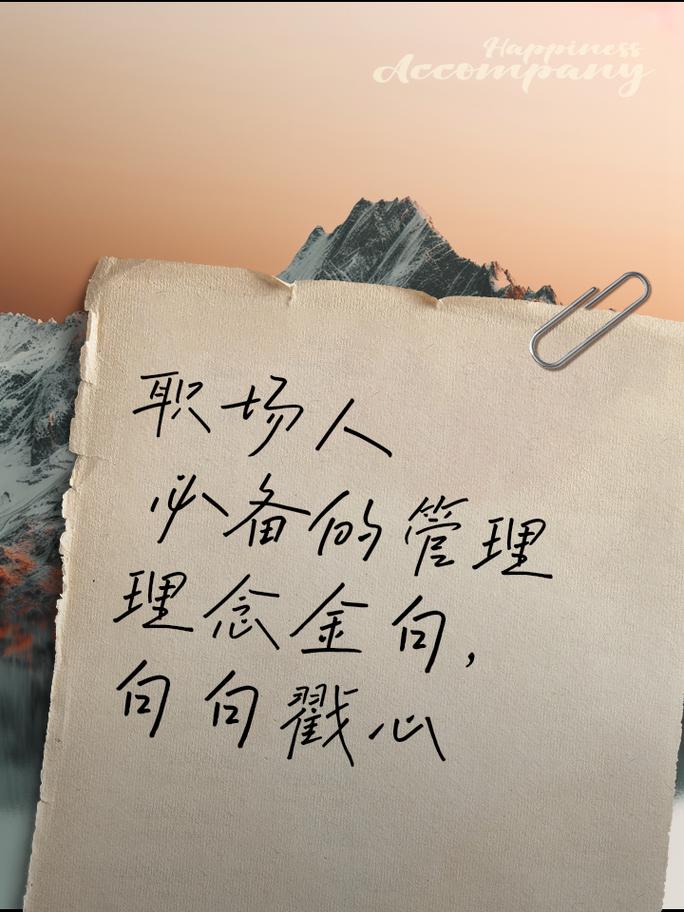 Happiness
Accompany
职场人
必备的管理
理念金句,
句句戳心